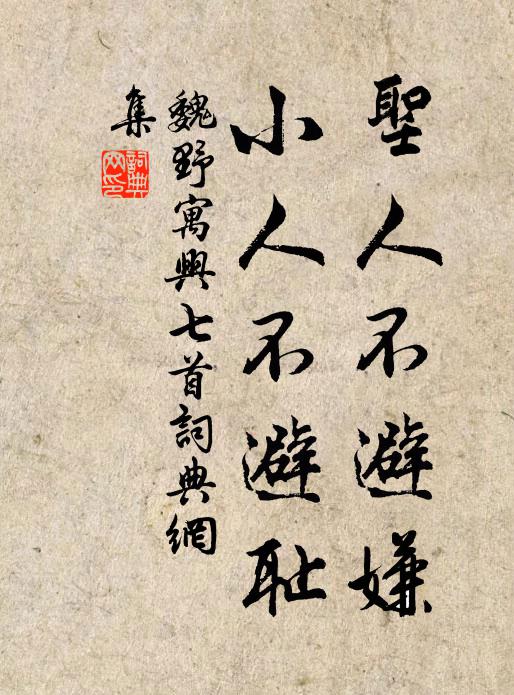 聖人不避嫌
小人不避耻
魏野寓興七首詞典網
集
詞典網印